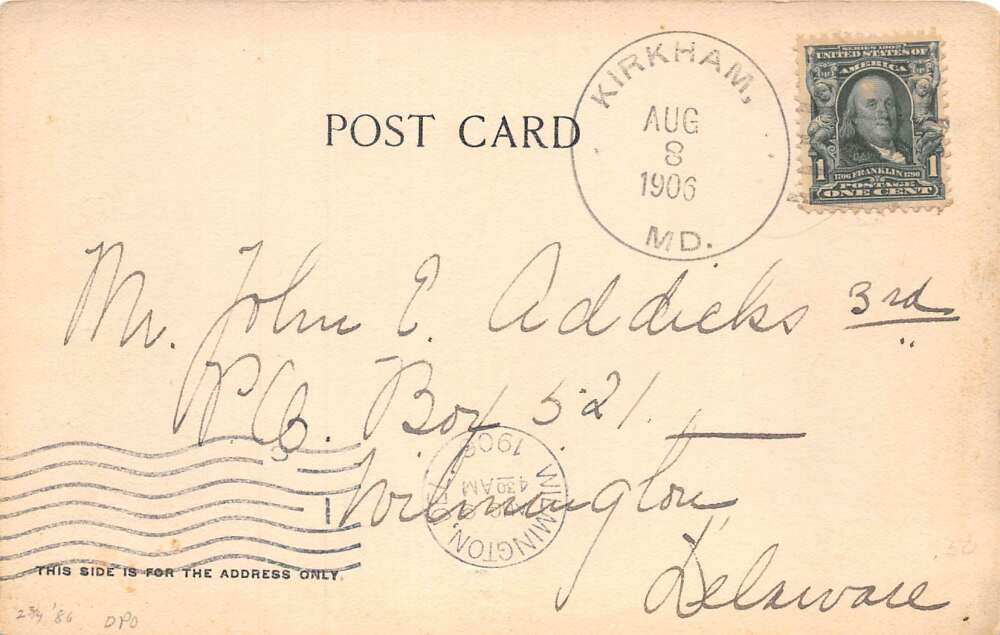 POST CARD
KIRKHAM,
AUG
8
1906
MD.
SERIES 1902
UNITED STATES OF
AMERICA
1
1706 FRANKLIN 1790
1
POSTAGE
ONE CENT
Mr. John E. Addicks 3rd
P.O. Box 521.
Wilmington
Delaware
WILMINGTON, DEL
4 30 AM
1906
THIS SIDE IS FOR THE ADDRESS ONLY.
'86 DPO
50